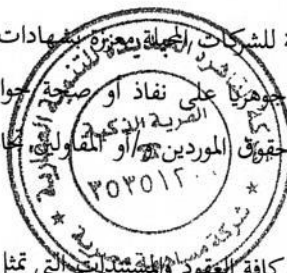 ة للشركات المحيلة معززة بشهادات
جوهريا على نفاذ أو صحة حوا
حقوق الموردين و/أو المقاولين تجا
كافة العقود والمستندات التي تمثل
شركة
للتنمية العقارية
القرية الذكية
٣٥٣٥١٢٠٠
شركة مساهمة مصرية